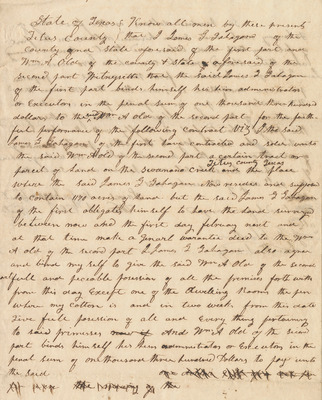 State of Texas } Know all men by these present
Titus County } that I James F Gahagan of the
County and State aforesaid of the first part and
Wm A Old of the county & State aforesaid of the
second part Witnesseth that the said James F Gahagan
of the first part binds himself his heirs administrators
or Executors in the penal sum of one thousand three hundred
dollars to the sd Wm A Old of the second part for the faith
ful performance of the following contract Viz I the said
James F Gahagan of the first have contracted and sold unto
the said Wm A Old of the second part a certain tract or
Titus County Texas
parcel of land on the creek and the place
where the said James F Gahagan Now resides and supposed
to contain acres of land but the said James F Gahagan
of the first obligates himself to have the land surveyed
between now and the first day february next and
at that time make a warantee deed to the Wm
A Old of the second part I James F Gahagan also agree
and bind my self to give the said Wm A Old of the second
full and peicable possion of all the primises forthwith
from this day Except one of the dwelling Rooms the pen
where my cotton is and in two weeks from this date
Give full possition of all and Every thing pertaining
to said primises And Wm A Old of the second
part binds himself his heirs administrators or Executors in the
penal sum of one thousand three hundred Dollars to pay unto
the said